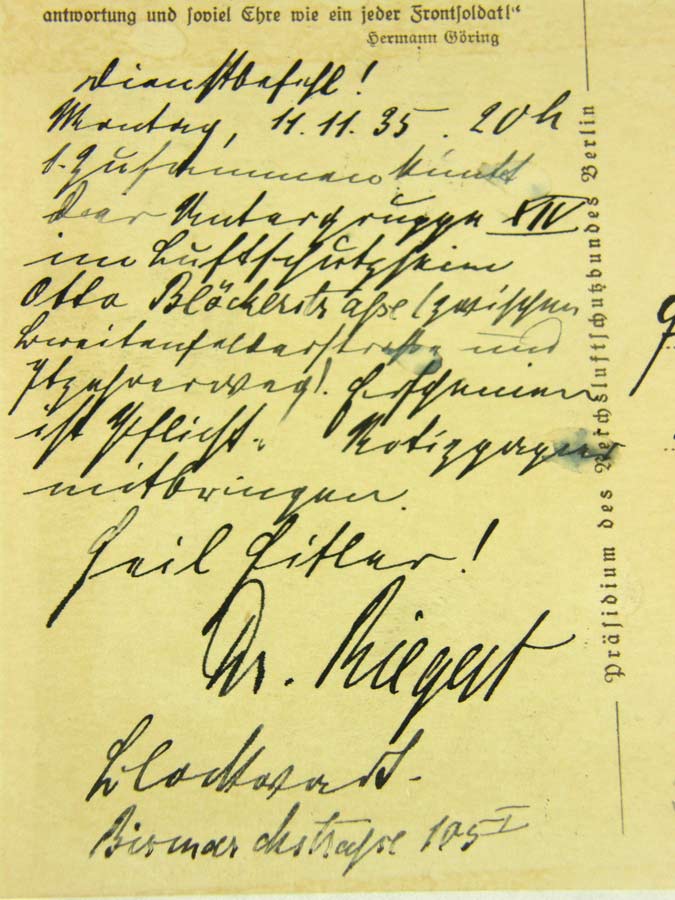 antwortung und soviel Ehre wie ein jeder Frontsoldat!“
Hermann Göring
Dienstbefehl!
Montag, 11.11.35. 20 h
1. Zusammenkunft
der Untergruppe XIV
im Luftschutzheim
Otto Blöckerstraße (zwischen
Breitenfelderstraße und
Itzehoerweg). Erscheinen
ist Pflicht. Notizpapier
mitbringen.
Heil Hitler!
Dr.
Blockwart.
Bismarckstraße 105 I
Präsidium des Reichsluftschutzbundes Berlin